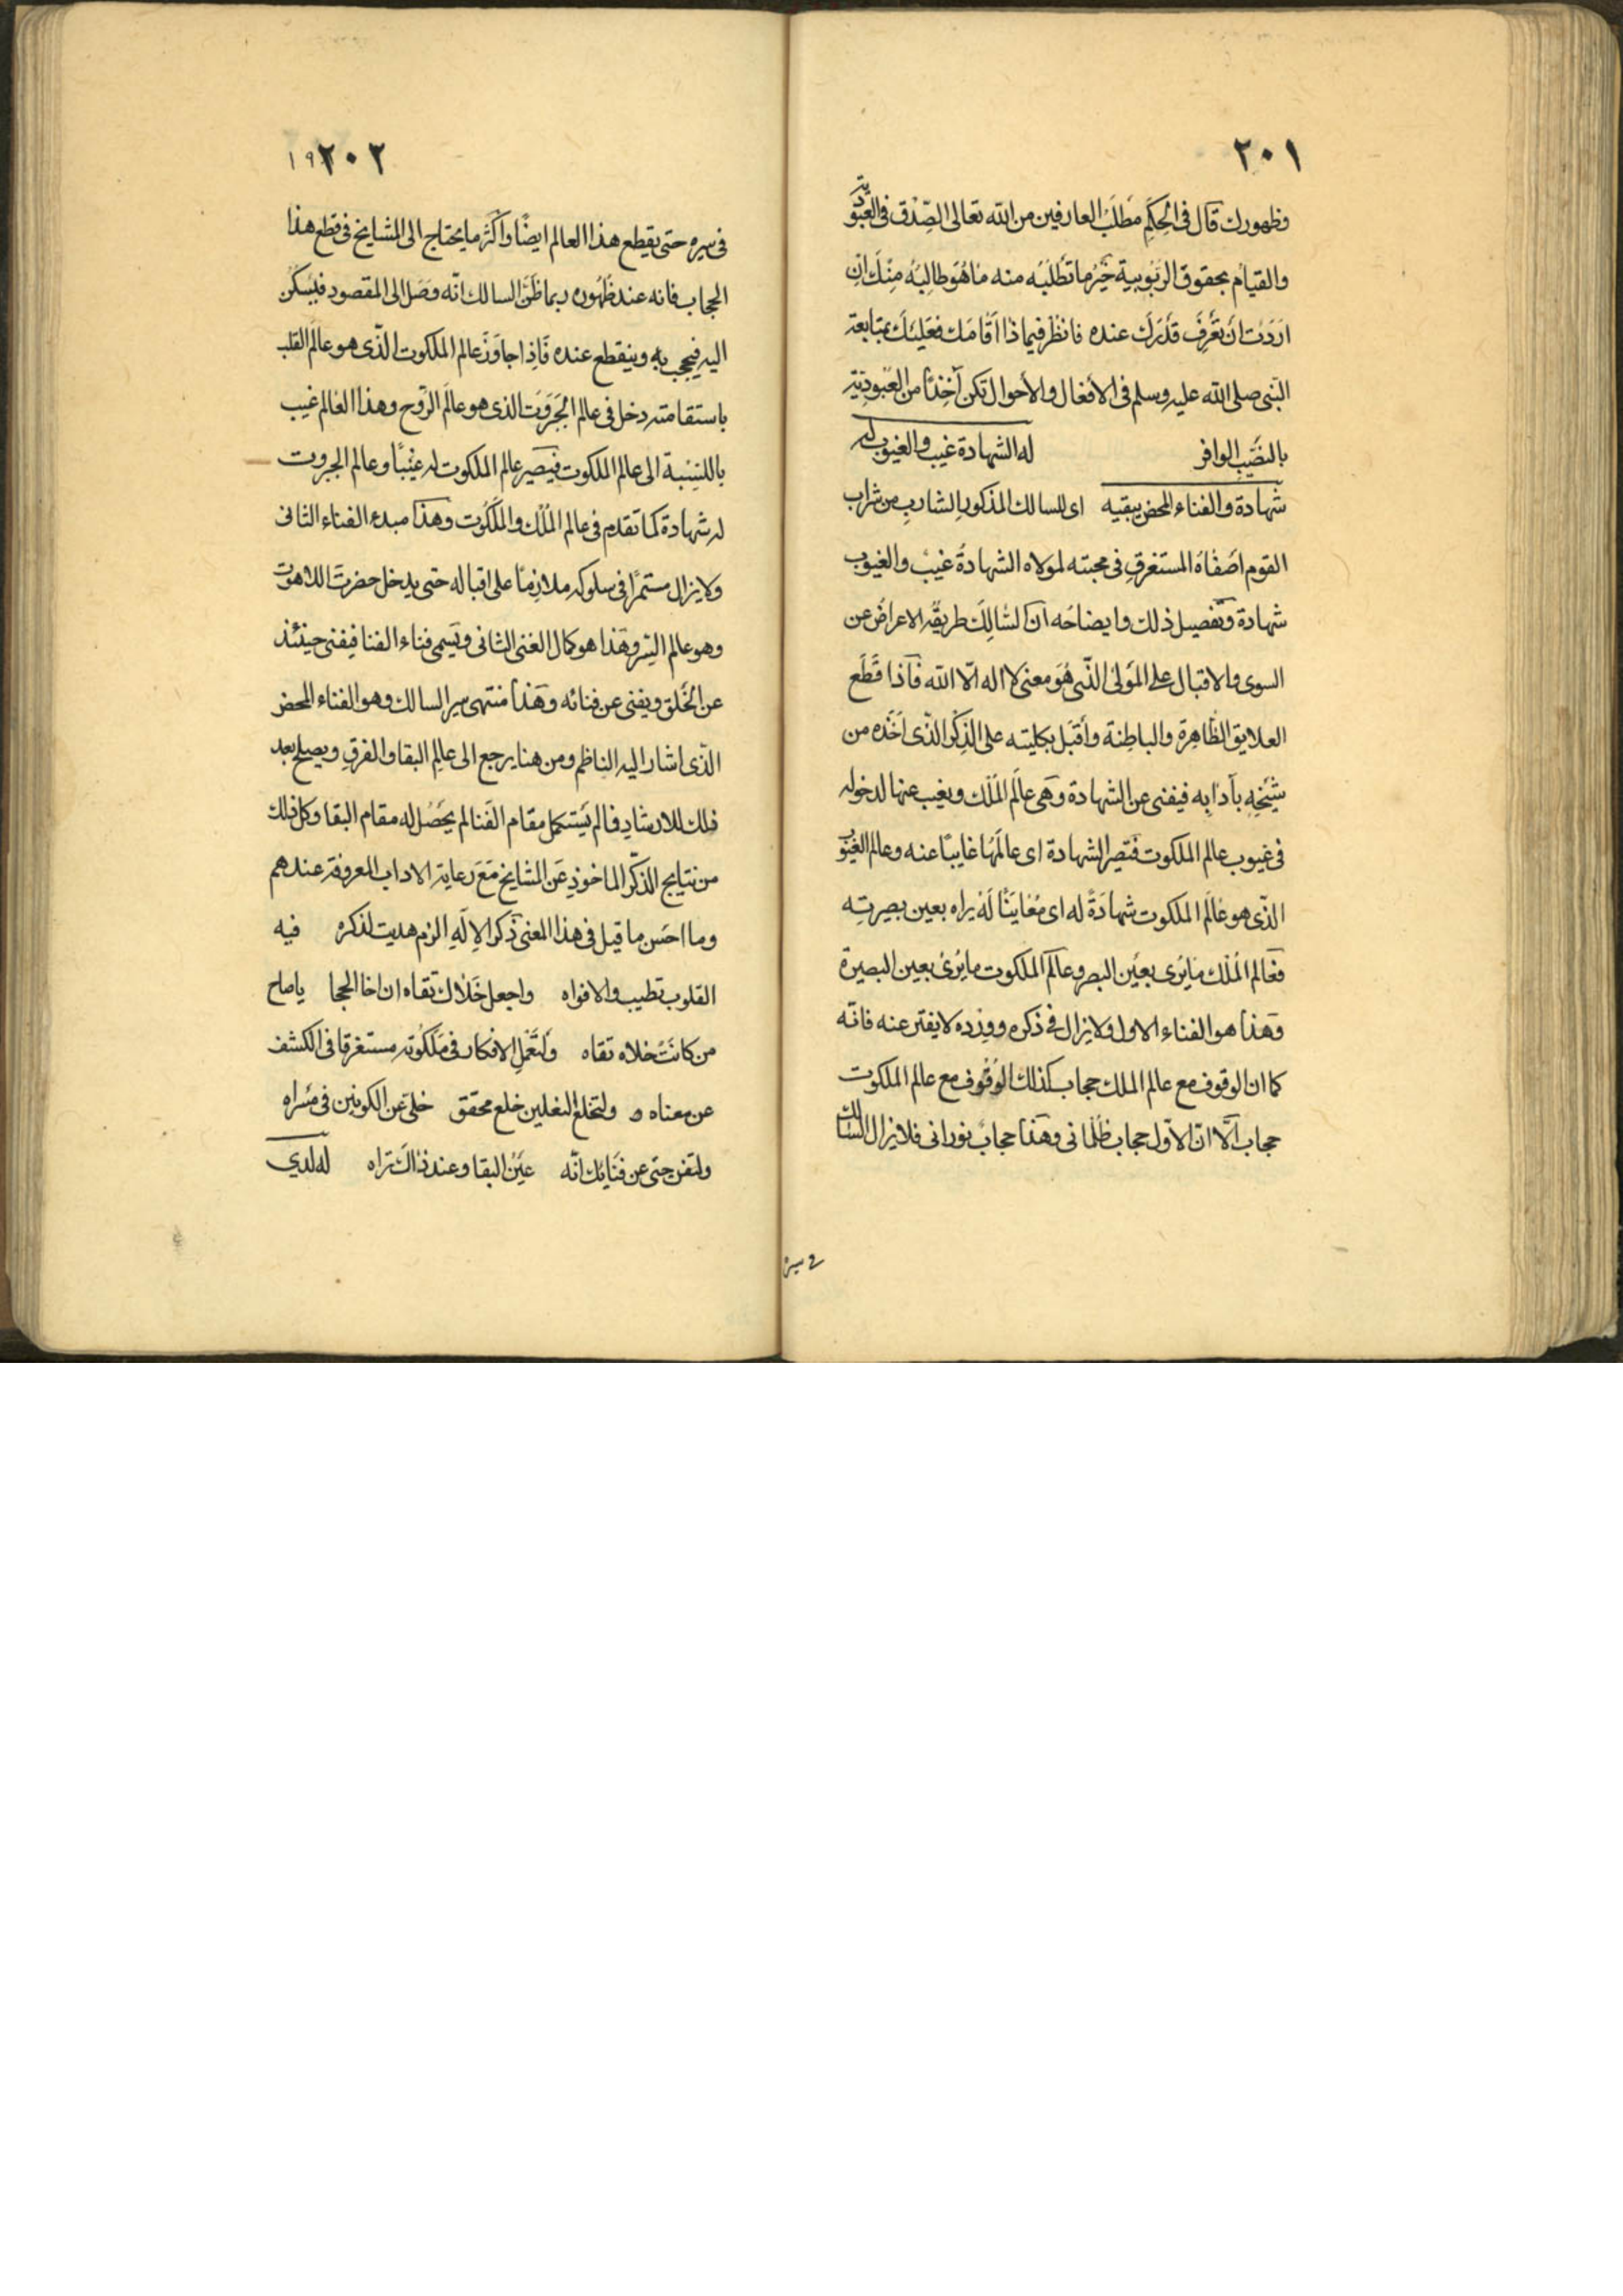 ٢٠١
وظهورك قال فى الحِكَمِ مَطلَبُ العارفين من الله تعالى الصِّدق فى العبُودية
والقيام بحقوق الربُوبية خَيرُ ما تَطلُبُه منه ما هُوَ طالِبُه مِنْكَ اِنْ
اَرَدتَ اَن تَعرِفَ قَدْرَكَ عنده فانظر فيماذا اَقامَك فعَلَيكَ بمتابعة
النّبى صلى الله عليه وسلم فى الأفعال والأحوال تكن آخِذًا من العُبوديّة
بالنصّيب الوافر له الشهادة غيب والغيوب له
شهادة والفناء المحض يبقيه اى للسالك المذكور الشارب من شراب
القوم اصفاه المستغرقِ فى محبته لمولاه الشهادةُ غيبٌ والغيوب
شهادة وتفصيل ذلك وايضاحَه ان السّالِكَ طريقُه الاعراضُ عن
السوى والاقبال على المَولى الذّى هُوَ معنى لا اله الّا الله فاذا قَطَع
العلايق الظّاهِرة والباطِنة وأقبَل بكليته على الذِكْر الذّى اَخَذه من
شَيْخِه بآدابِه فيفنى عن الشهادة وهى عالَم المُلك ويغيب عنها لدخوله
فى غيوب عالم الملكوت فتصير الشهادة اى عالمُها غايبًا عنه وعالم الغيُوب
الذّى هو عالَم الملكوت شهادَةً له اى مُعَاينًا لَهُ يراه بعين بصيرتِه
فعَالم المُلك ما يُرى بعَين البصر وعالَم الملكوت ما يُرىٰ بعين البصيرة
وهذا هو الفناء الاول ولا يزال فى ذكره ووِرْده لا يفتر عنه فانّه
كما ان الوقوف مع عالم الملك حجاب كذلك الوقوف مع عالم الملكوت
حجاب الّا انّ الاوّل حجاب ظلمانى وهذا حجابٌ نورانى فلا يزال السّالك
فى سيره
٢٠٢ ١٩
فى سيره حتى يقطع هذا العالم ايضًا واكثر ما يحتاج الى المشايخ فى قطع هذا
الحجاب فانه عند ظهُوره ربما ظنَّ السالك انّه وصَل الى المقصود فيسكن
اليه فيحجب به وينقطع عنده فَاِذا جاوَزَ عالم الملكوت الذّى هو عالَم القلب
باستقامته دخل فى عالم الجَبَروت الذى هو عالَم الرّوح وهذا العالم غيب
بالنِسْبة الى عالم الملكوت فيَصير عالم الملكوت له غَيْبًا وعالم الجبروت
له شهادة كما تقدم فى عالم المُلك والمَلَكُوت وهَذا مبدء الفناء الثانى
ولا يزال مستمرًّا فى سلوكه ملازِمًا على اقباله حتى يدخل حضرتَ اللاهوت
وهو عالم السّر وهَذا هو كمال الفنى الثانى ويَسمى فناء الفنا فيفنى حينئذ
عن الخَلق ويفنى عن فنائه وهَذا منتهى سير السالك وهو الفناء المحض
الذّى اشار اليه الناظم ومن هنا يرجع الى عالم البقا والفرقِ ويصلح بعد
ذلك للارشادِ فما لم يَستكمل مقام الفَنا لم يَحصُل له مقام البقا وكل ذلك
من نتايج الذّكر الماخوذِ عَن المشايخ مَعَ رعاية الاداب المعروفة عندهم
وما احسَن ما قيل فى هذا المعنى ذكرَ الاِلَهِ الزم هديت لذكره فيه
القلوب تطيب والافواه واجعل حَلاك تقاه ان اخا الحجا ياصاح
من كانَتْ حُلاه تقاه ولتُعْمل الافكار فى مَلَكُوته مستغرقا فى الكشف
عن معناه ولتخلع النعلين خلع محقق خلى عن الكونين فى مسراه
ولتفن حتى عن فَنَايِك انّه عَيْنُ البقا وعند ذاكَ تَراه له لدى